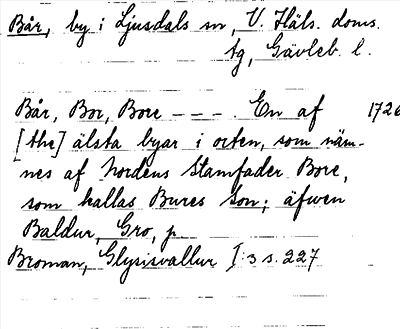 Bår, by i Ljusdals sn, V. Häls. doms.
tg, Gävleb. l.
Bår, Bor, Bore - - - . En af 1726
[the] älsta byar i orten, som näm-
nes af Nordens Stamfader Bore,
som kallas Bures Son; äfwen
Baldur, Gro, p.
Broman, Glysisvallur I: 3 s. 227